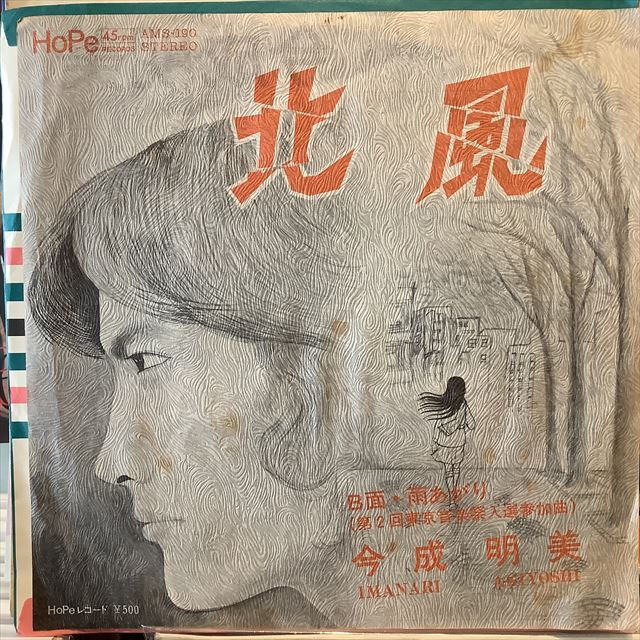 HoPe 45rpm RECORDS AMS-190 STEREO
北風
B面・雨あがり
(第2回東京音楽祭入選参加曲)
今成明美
IMANARI AKIYOSHI
HoPeレコード ¥500